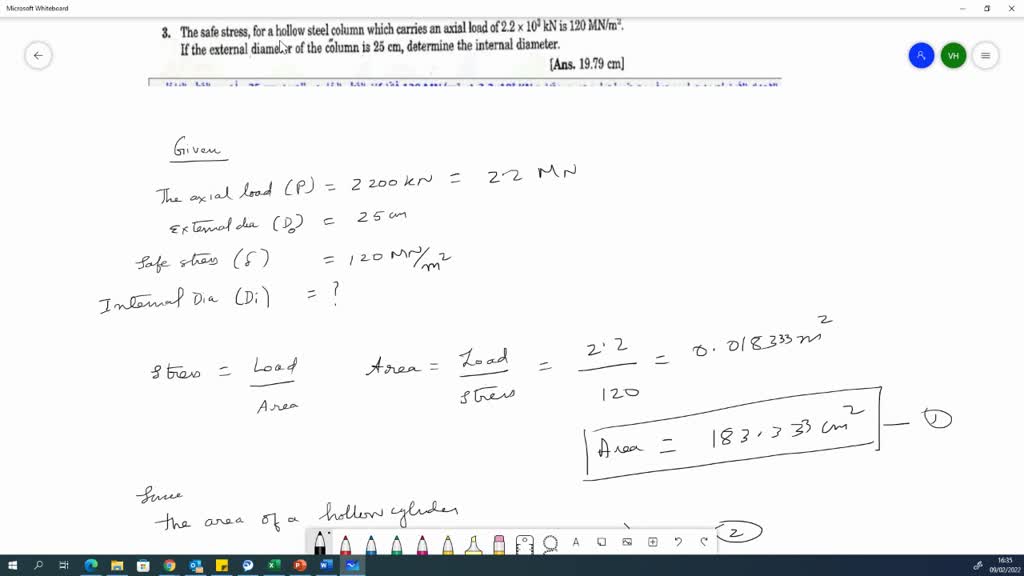 Microsoft Whiteboard
3. The safe stress, for a hollow steel column which carries an axial load of 2.2 × 10³ kN is 120 MN/m².
If the external diameter of the column is 25 cm, determine the internal diameter.
[Ans. 19.79 cm]
VH
Given
The axial load (P) = 2200 kN = 2.2 MN
External dia (D₀) = 25 cm
Safe stress (f) = 120 MN/m²
Internal Dia (Di) = ?
Stress = Load/Area Area = Load/Stress = 2.2/120 = 0.018333 m²
Area = 183.333 cm² — ①
Since
the area of a hollow cylinder
②
16:35
09/02/2022